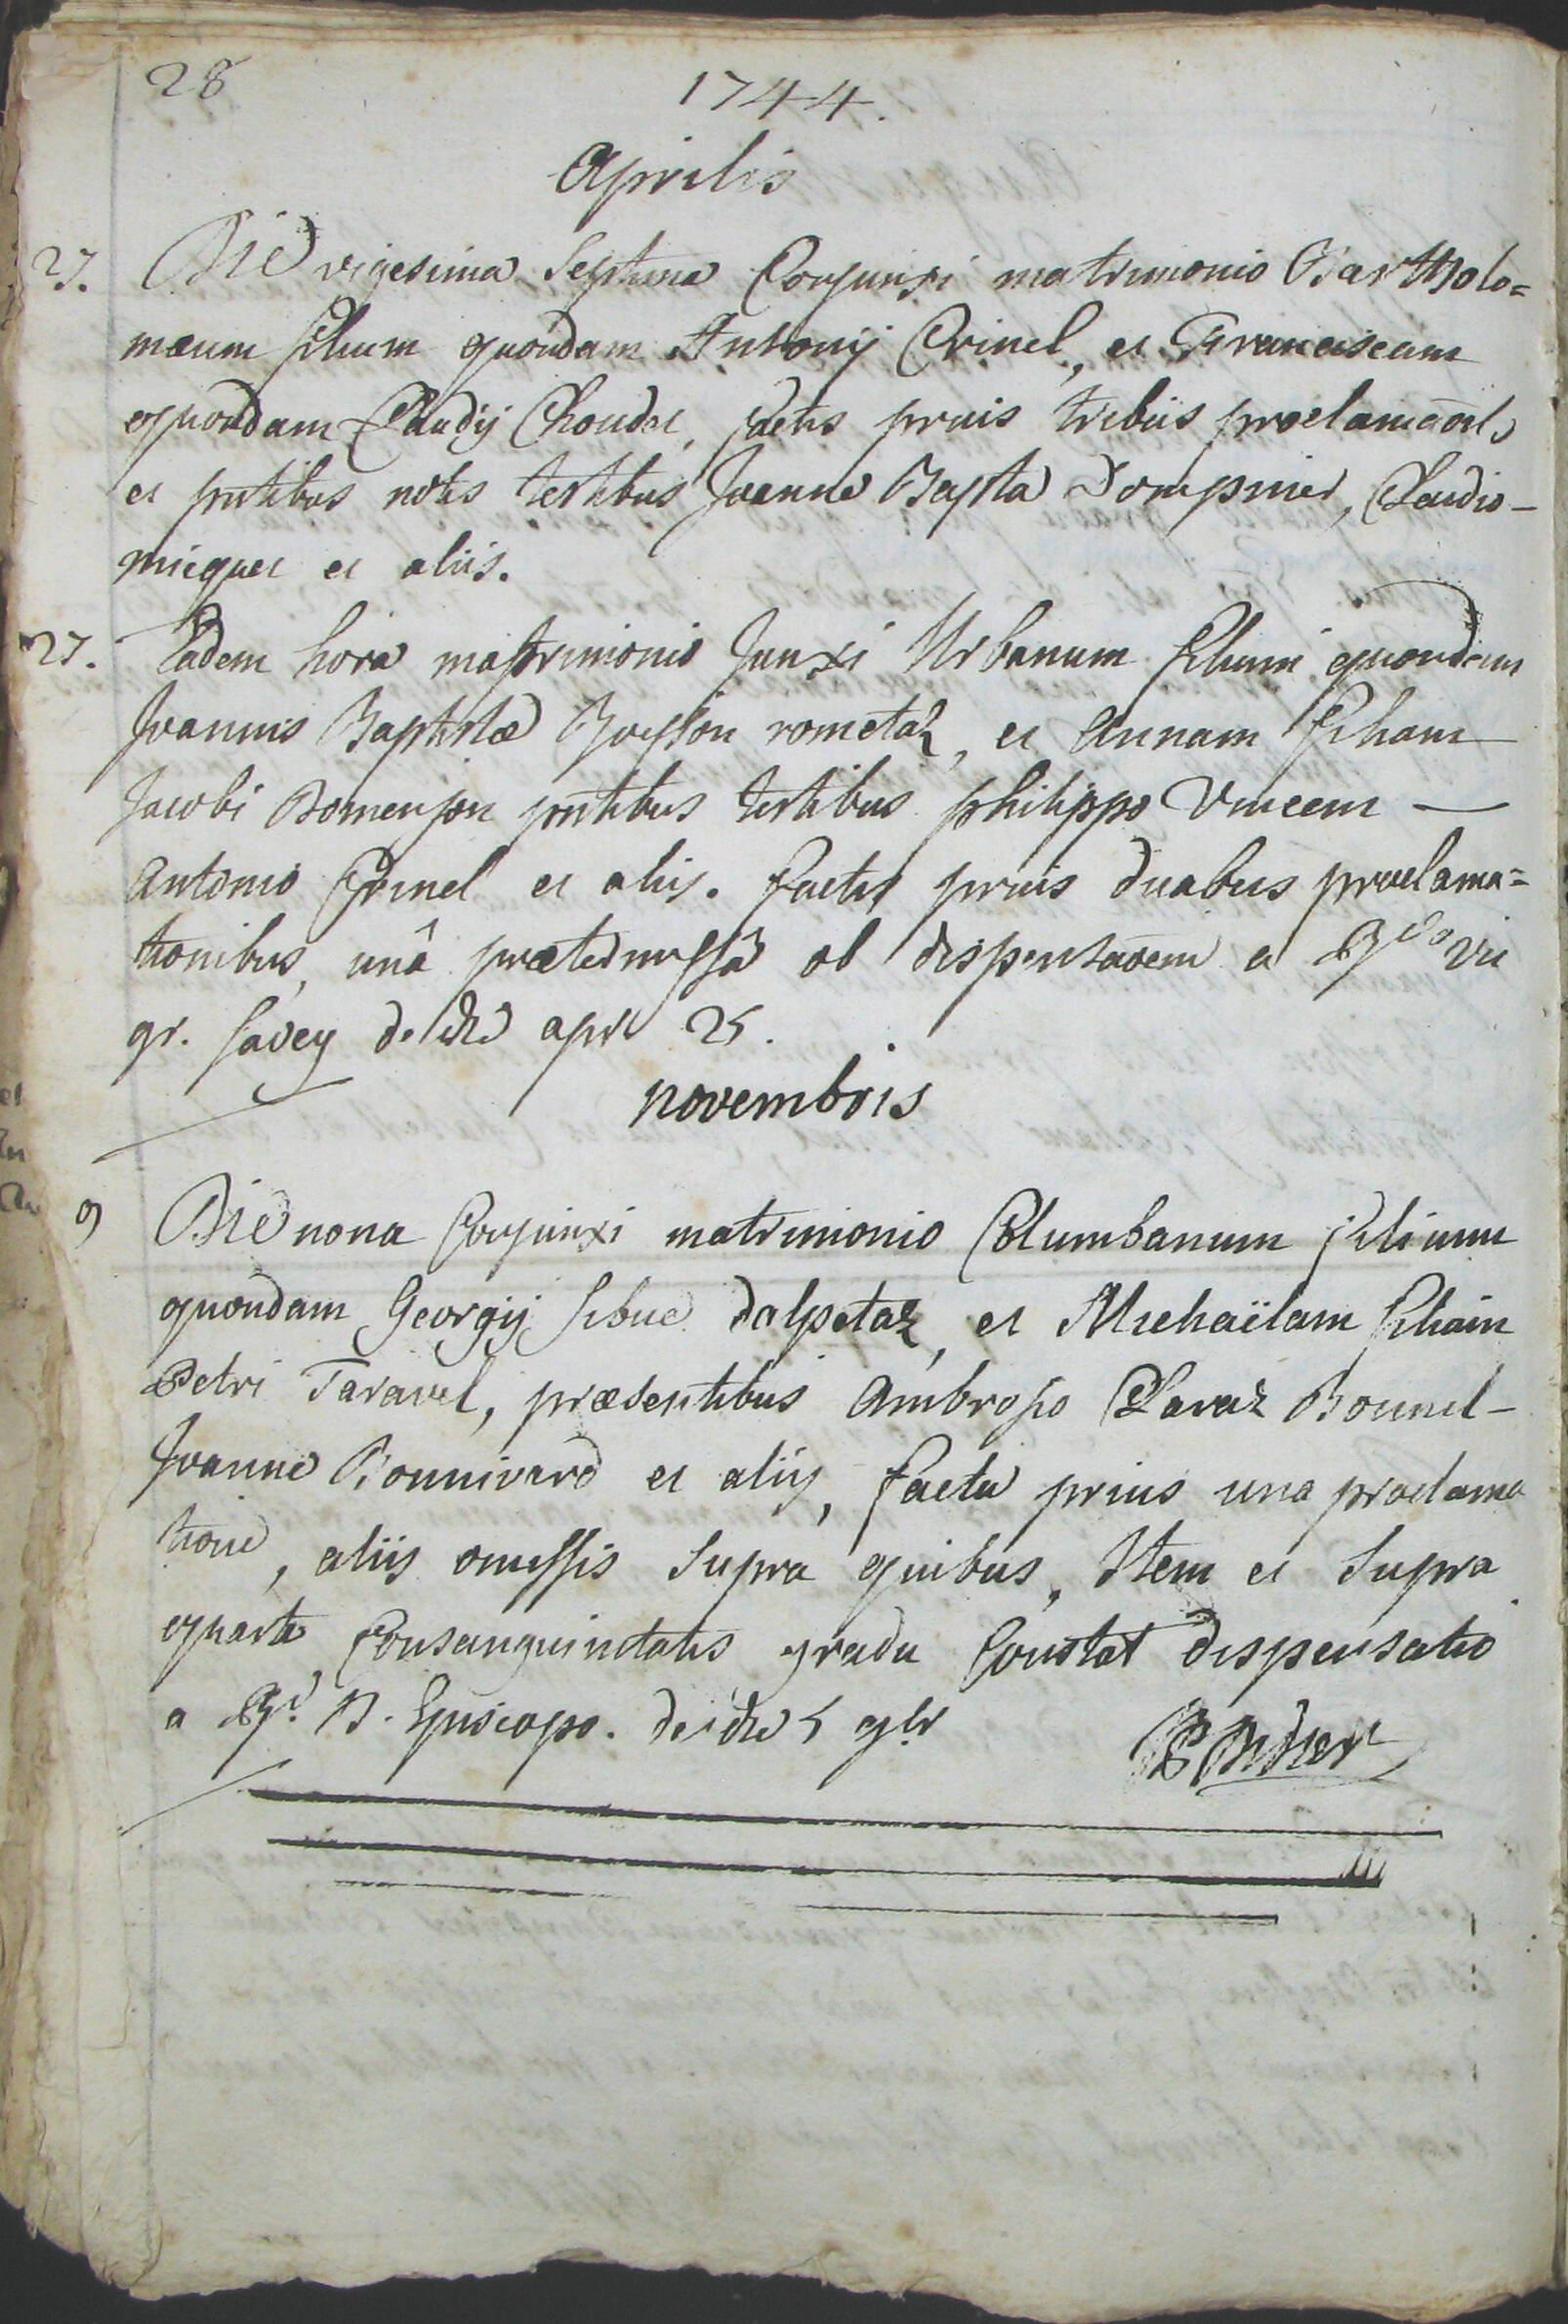 28
1744.
Aprilis
27. Die vigesima Septima Conjunxi matrimonio Bartholo=
mæum filium quondam Antonij Crinel, et Franciscam
quondam Claudij Choudet, factis prius tribus proclamaõnib,
et pntibus notis testibus Joanne Bapta Dompnier, Claudio -
micquet et aliis.
27. Eadem hora matrimonio Junxi Urbanum filium quondam
Joannis Baptistæ Boisson rometaz, et Annam filiam
Jacobi Domenjon pntibus testibus philippo Vincent -
Antonio Crinel et aliis. factis prius duabus proclama=
tionibus, unâ prætermissâ ob dispensaõem a Rdo Vic
gr. Savey de die apr 25.
novembris
9 Die nona Conjunxi matrimonio Columbanum filium
quondam Georgij Sibue dalpetaz, et Michaëlam filiam
Petri Taravel, præsentibus Ambrosio Claraz Bonnel -
Joanne Bonnivard et aliis, facta prius una proclama
tione, aliis omissis Supra quibus, Item et Supra
quarto Consanguinitatis gradu Constat dispensatio
a Rd. D. Episcopo. de die 5 9br